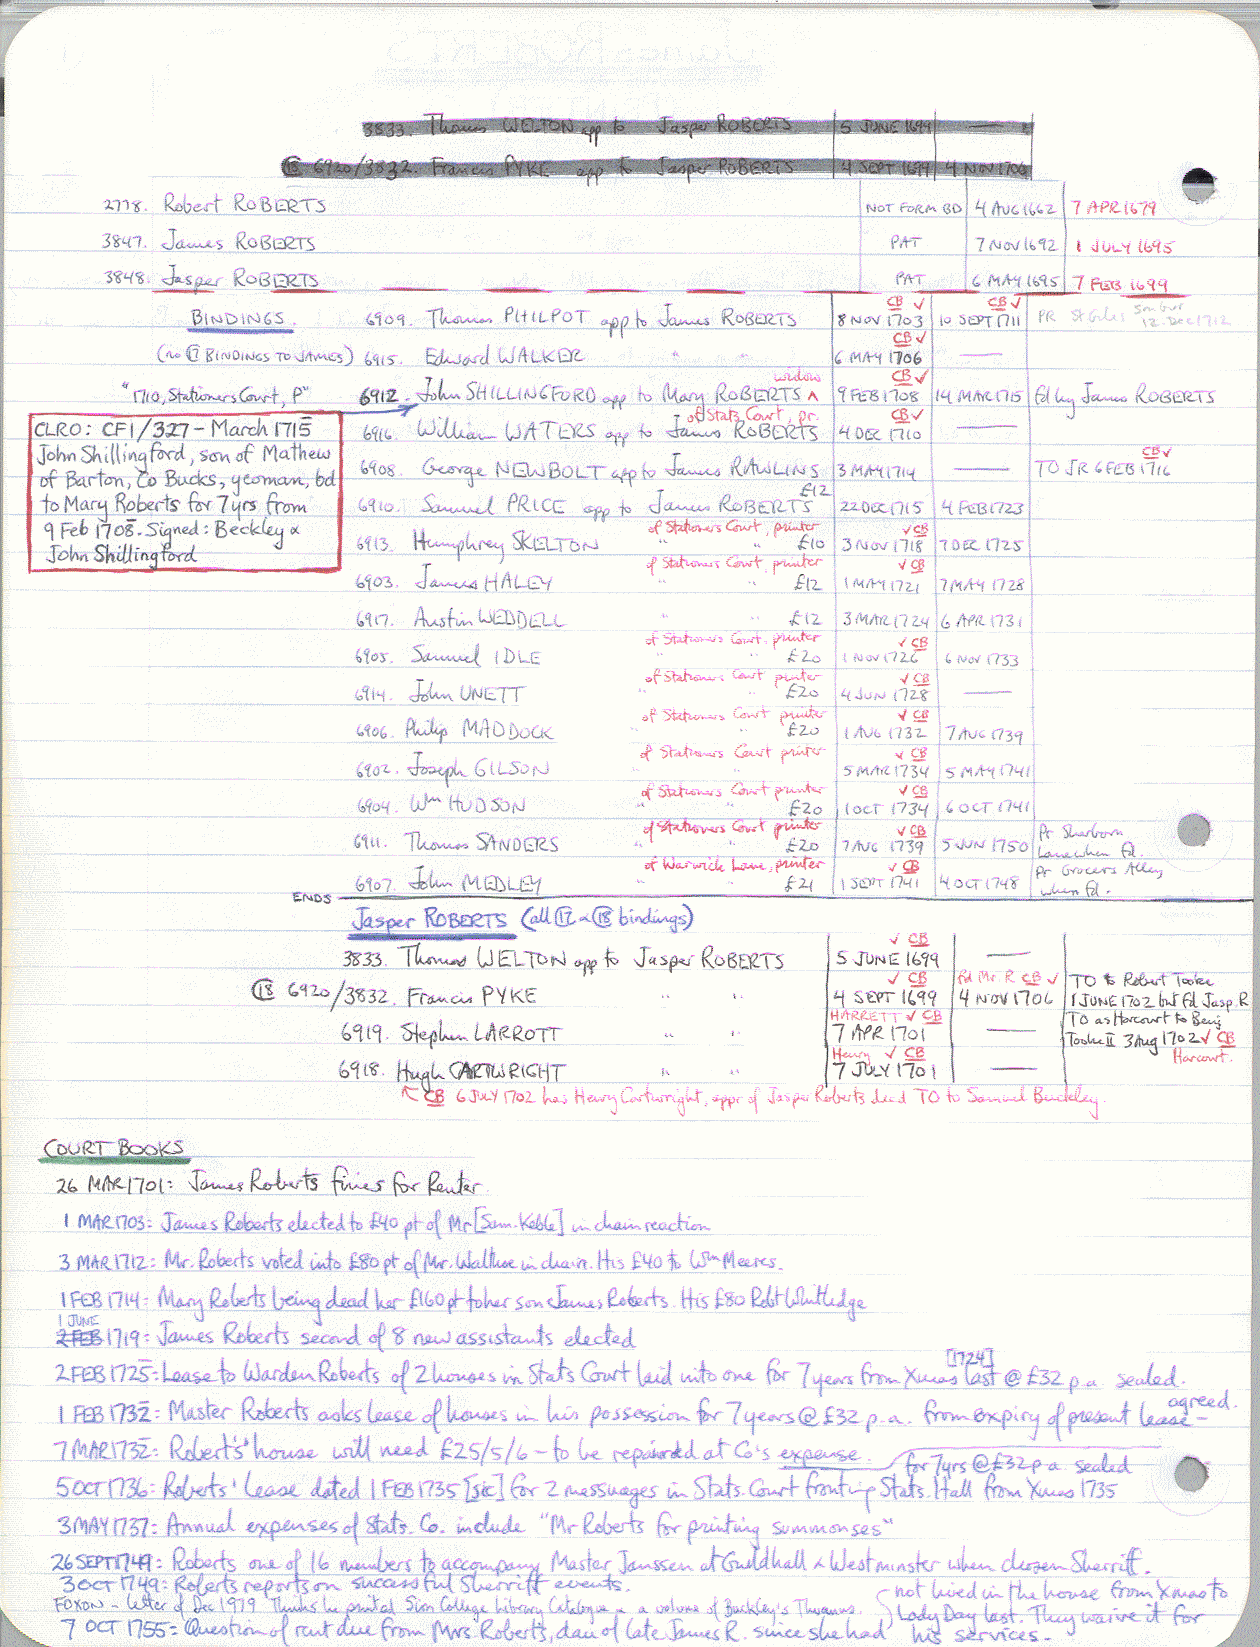 3833. Thomas WELTON app to Jasper ROBERTS 5 JUNE 1699 —
⑱ 6920/3832. Francis PYKE app to Jasper ROBERTS 4 SEPT 1699 4 NOV 1706
2778. Robert ROBERTS NOT FORM BD 4 AUG 1662 7 APR 1679
3847. James ROBERTS PAT 7 NOV 1692 1 JULY 1695
3848. Jasper ROBERTS PAT 6 MAY 1695 7 FEB 1699
CB ✓ CB ✓
BINDINGS. 6909. Thomas PHILPOT app to James ROBERTS 8 NOV 1703 10 SEPT 1711 PR St Giles 12 Dec 1712
CB ✓
(no ⑰ BINDINGS TO JAMES) 6915. Edward WALKER " " 6 MAY 1706 —
widow CB ✓
"1710, Stationers Court, P" 6912. John SHILLINGFORD app to Mary ROBERTS ^ 9 FEB 1708 14 MAR 1715 fd by James ROBERTS
of Stats. Court, pr. CB ✓
6916. William WATERS app to James ROBERTS 4 DEC 1710 —
CLRO: CF1/327 - March 1715
John Shillingford, son of Mathew
of Barton, Co Bucks, yeoman, bd
to Mary Roberts for 7 yrs from
9 Feb 1708. Signed: Beckley &
John Shillingford
CB ✓
6908. George NEWBOLT app to James RAWLINS 3 MAY 1714 — TO JR 6 FEB 1716
£12
6910. Samuel PRICE app to James ROBERTS 22 DEC 1715 4 FEB 1723
of Stationers Court, printer ✓ CB
6913. Humphrey SKELTON " " £10 3 NOV 1718 7 DEC 1725
of Stationers Court, printer ✓ CB
6903. James HALEY " " £12 1 MAY 1721 7 MAY 1728
6917. Austin WEDDELL " " £12 3 MAR 1724 6 APR 1731
of Stationers Court, printer ✓ CB
6905. Samuel IDLE " " £20 1 NOV 1726 6 NOV 1733
of Stationers Court printer ✓ CB
6914. John UNETT " " £20 4 JUN 1728 —
of Stationers Court printer ✓ CB
6906. Philip MADDOCK " " £20 1 AUG 1732 7 AUG 1739
of Stationers Court printer ✓ CB
6902. Joseph GILSON " " 5 MAR 1734 5 MAY 1741
of Stationers Court printer ✓ CB
6904. Wm HUDSON " " £20 1 OCT 1734 6 OCT 1741
of Stationers Court printer ✓ CB
6911. Thomas SANDERS " " £20 7 AUG 1739 5 JUN 1750 Pr Sherborn Lane when fd.
of Warwick Lane, printer ✓ CB
6907. John MEDLEY " " £21 1 SEPT 1741 4 OCT 1748 Pr Grocers Alley when fd.
ENDS
Jasper ROBERTS (all ⑰ & ⑱ bindings)
✓ CB
3833. Thomas WELTON app to Jasper ROBERTS 5 JUNE 1699 —
✓ CB fd Mr. R CB ✓
⑱ 6920/3832. Francis PYKE " " 4 SEPT 1699 4 NOV 1706 TO to Robert Tooke 1 JUNE 1702 but fd Jasp. R
HARRETT ✓ CB
6919. Stephen LARROTT " " 7 APR 1701 — TO as Harcourt to Benj. Tooke II 3 Aug 1702 ✓ CB
Henry ✓ CB Harcourt.
6918. Hugh CARTWRIGHT " " 7 JULY 1701 —
↖ CB 6 JULY 1702 has Henry Cartwright, appr of Jasper Roberts decd TO to Samuel Buckley.
COURT BOOKS
26 MAR 1701: James Roberts fines for Renter.
1 MAR 1703: James Roberts elected to £40 pt of Mr [Sam. Keble] in chain reaction
3 MAR 1712: Mr. Roberts voted into £80 pt of Mr. Walthoe in chain. His £40 to Wm Meeres.
1 FEB 1714: Mary Roberts being dead her £160 pt to her son James Roberts. His £80 Robt Whitledge
1 JUNE
2 FEB 1719: James Roberts second of 8 new assistants elected
[1724]
2 FEB 1725: Lease to Warden Roberts of 2 houses in Stats Court laid into one for 7 years from Xmas last @ £32 p.a. sealed.
agreed.
1 FEB 1732: Master Roberts asks lease of houses in his possession for 7 years @ £32 p.a. from expiry of present lease -
7 MAR 1732: Roberts' house will need £25/5/6 - to be repaired at Co's expense.
for 7 yrs @ £32 p.a. sealed
5 OCT 1736: Roberts' Lease dated 1 FEB 1735 [sic] for 2 messuages in Stats. Court fronting Stats. Hall from Xmas 1735
3 MAY 1737: Annual expenses of Stats. Co. include "Mr Roberts for printing summonses"
26 SEPT 1749: Roberts one of 16 members to accompany Master Janssen at Guildhall & Westminster when chosen Sherriff.
3 OCT 1749: Roberts reports on successful Sherriff events.
FOXON - letter of Dec 1979 Thinks he printed Sion College Library Catalogue & a volume of Buckley's Thuanus.
7 OCT 1755: Question of rent due from Mrs. Roberts, dau of late James R. since she had
not lived in the house from Xmas to
Lady Day last. They waive it for
his services.